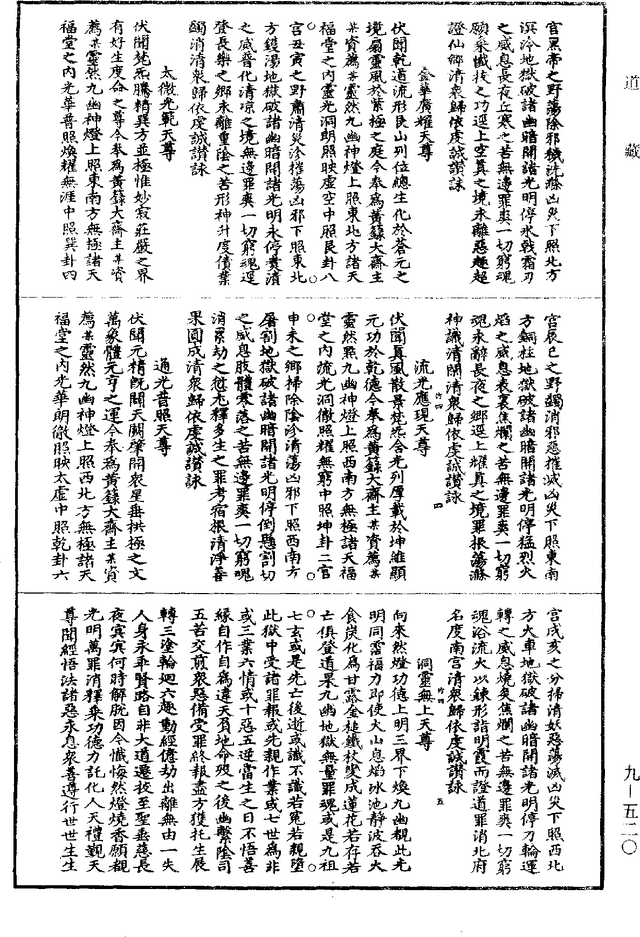 道藏
宮黑帝之野蕩除邪穢洗滌凶災下照北方
溟泠地獄破諸幽暗開諸光明停氷戟霜刃
之威息長夜丘寒之苦無邊罪爽一切窮魂
願乘懺技之功逕上空真之境永離惡趣超
證仙鄉清衆歸依虔誠讚詠
金華廣耀天尊
伏聞乾道流形艮山列位總生化於蒼元之
境扇靈風於紫極之庭今奉爲黃籙大齋主
某資薦某靈然九幽神燈上照東北方諸天
福堂之內靈光洞朗照映虛空中照艮卦八
宮丑寅之野肅清災沴摧蕩凶邪下照東北
方鑊湯地獄破諸幽暗開諸光明永停煑漬
之威普化清凉之境無邊罪爽一切窮魂逕
登長樂之鄉永離重陰之苦形神升度債業
蠲消清衆歸依虔誠讚詠
太微光範天尊
伏聞梵炁騰精巽方並極惟妙寂莊嚴之界
有好生度命之尊今奉爲黃籙大齋主某資
薦某靈然九幽神燈上照東南方無極諸天
福堂之內光華普照煥耀無涯中照巽卦四
宮辰巳之野蠲消邪惡摧滅凶災下照東南
方銅柱地獄破諸幽暗開諸光明停猛烈火
焰之威息表裏焦爛之苦無邊罪爽一切窮
魂永辭長夜之鄉逕上耀真之境罪根蕩滌
神識清閑清衆歸依虔誠讚詠
流光應現天尊
伏聞真風散景梵炁含光列厚載於坤維顯
元功於乾德今奉爲黃籙大齋主某資薦某
靈然點九幽神燈上照西南方無極諸天福
堂之內流光洞徹照耀無窮中照坤卦二宮
申未之鄉掃除陰沴清蕩凶邪下照西南方
屠割地獄破諸幽暗開諸光明停倒懸割切
之威息肢體零落之苦無邊罪爽一切窮魂
消累劫之愆尤釋多生之罪考宿根清淨善
果圓成清衆歸依虔誠讚詠
通光普照天尊
伏聞元精旣闢天關肇開衆星垂拱極之文
萬象體元亨之運今奉爲黃籙大齋主某資
薦某靈然九幽神燈上照西北方無極諸天
福堂之內光華朗徹照映太虛中照乾卦六
宮戌亥之分掃清妖惡蕩滅凶災下照西北
方火車地獄破諸幽暗開諸光明停刀輪運
轉之威息燒炙焦爛之苦無邊罪爽一切窮
魂浴流火以鍊形詣明霞而證道罪消北府
名度南宮清衆歸依虔誠讚詠
洞靈無上天尊
向來然燈功德上明三界下煥九幽覩此光
明同霑福力即使火山息焰氷池靜波吞火
食炭化爲甘露金槌鐵杖變成蓮花若存若
亡俱登道果九幽地獄無量罪魂或是九祖
七玄或是先亡後逝或識不識若冤若親墮
此獄中受諸罪報或先親作業或七世爲非
或三業六情或十惡五逆當生之日不悟善
緣自作自爲違天負地命歿之後幽繫陰司
五苦交煎衆惡備受罪終報盡方獲托生展
轉三塗輪迴六趣動經億劫出離無由一失
人身永乖賢路自非大道遷拔至聖垂慈長
夜寘寘何時解脫因今懺悔然燈燒香願覩
光明萬罪消釋乘功德力託化人天禮覲天
尊聞經悟法諸惡永息衆善遵行世世生生
九—五二〇